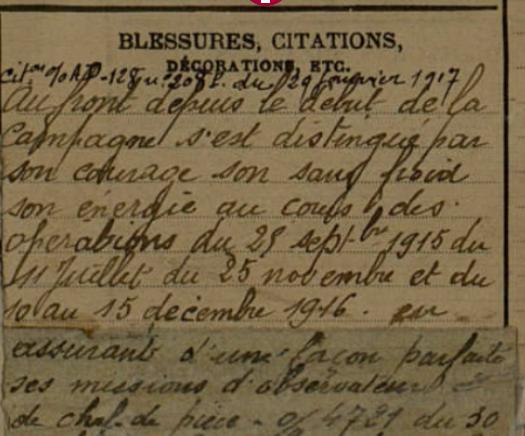 BLESSURES, CITATIONS,
DÉCORATIONS, ETC.
du 29 janvier 1917
Au front depuis le début de la
Campagne s'est distingué par
son courage son sang froid
son énergie au cours des
operations du 25 sept bre 1915 du
11 Juillet du 25 novembre et du
10 au 15 décembre 1916. en
assurant d'une façon parfaite
ses missions d'observateur
de chef de pièce - o/ 4721 du 30